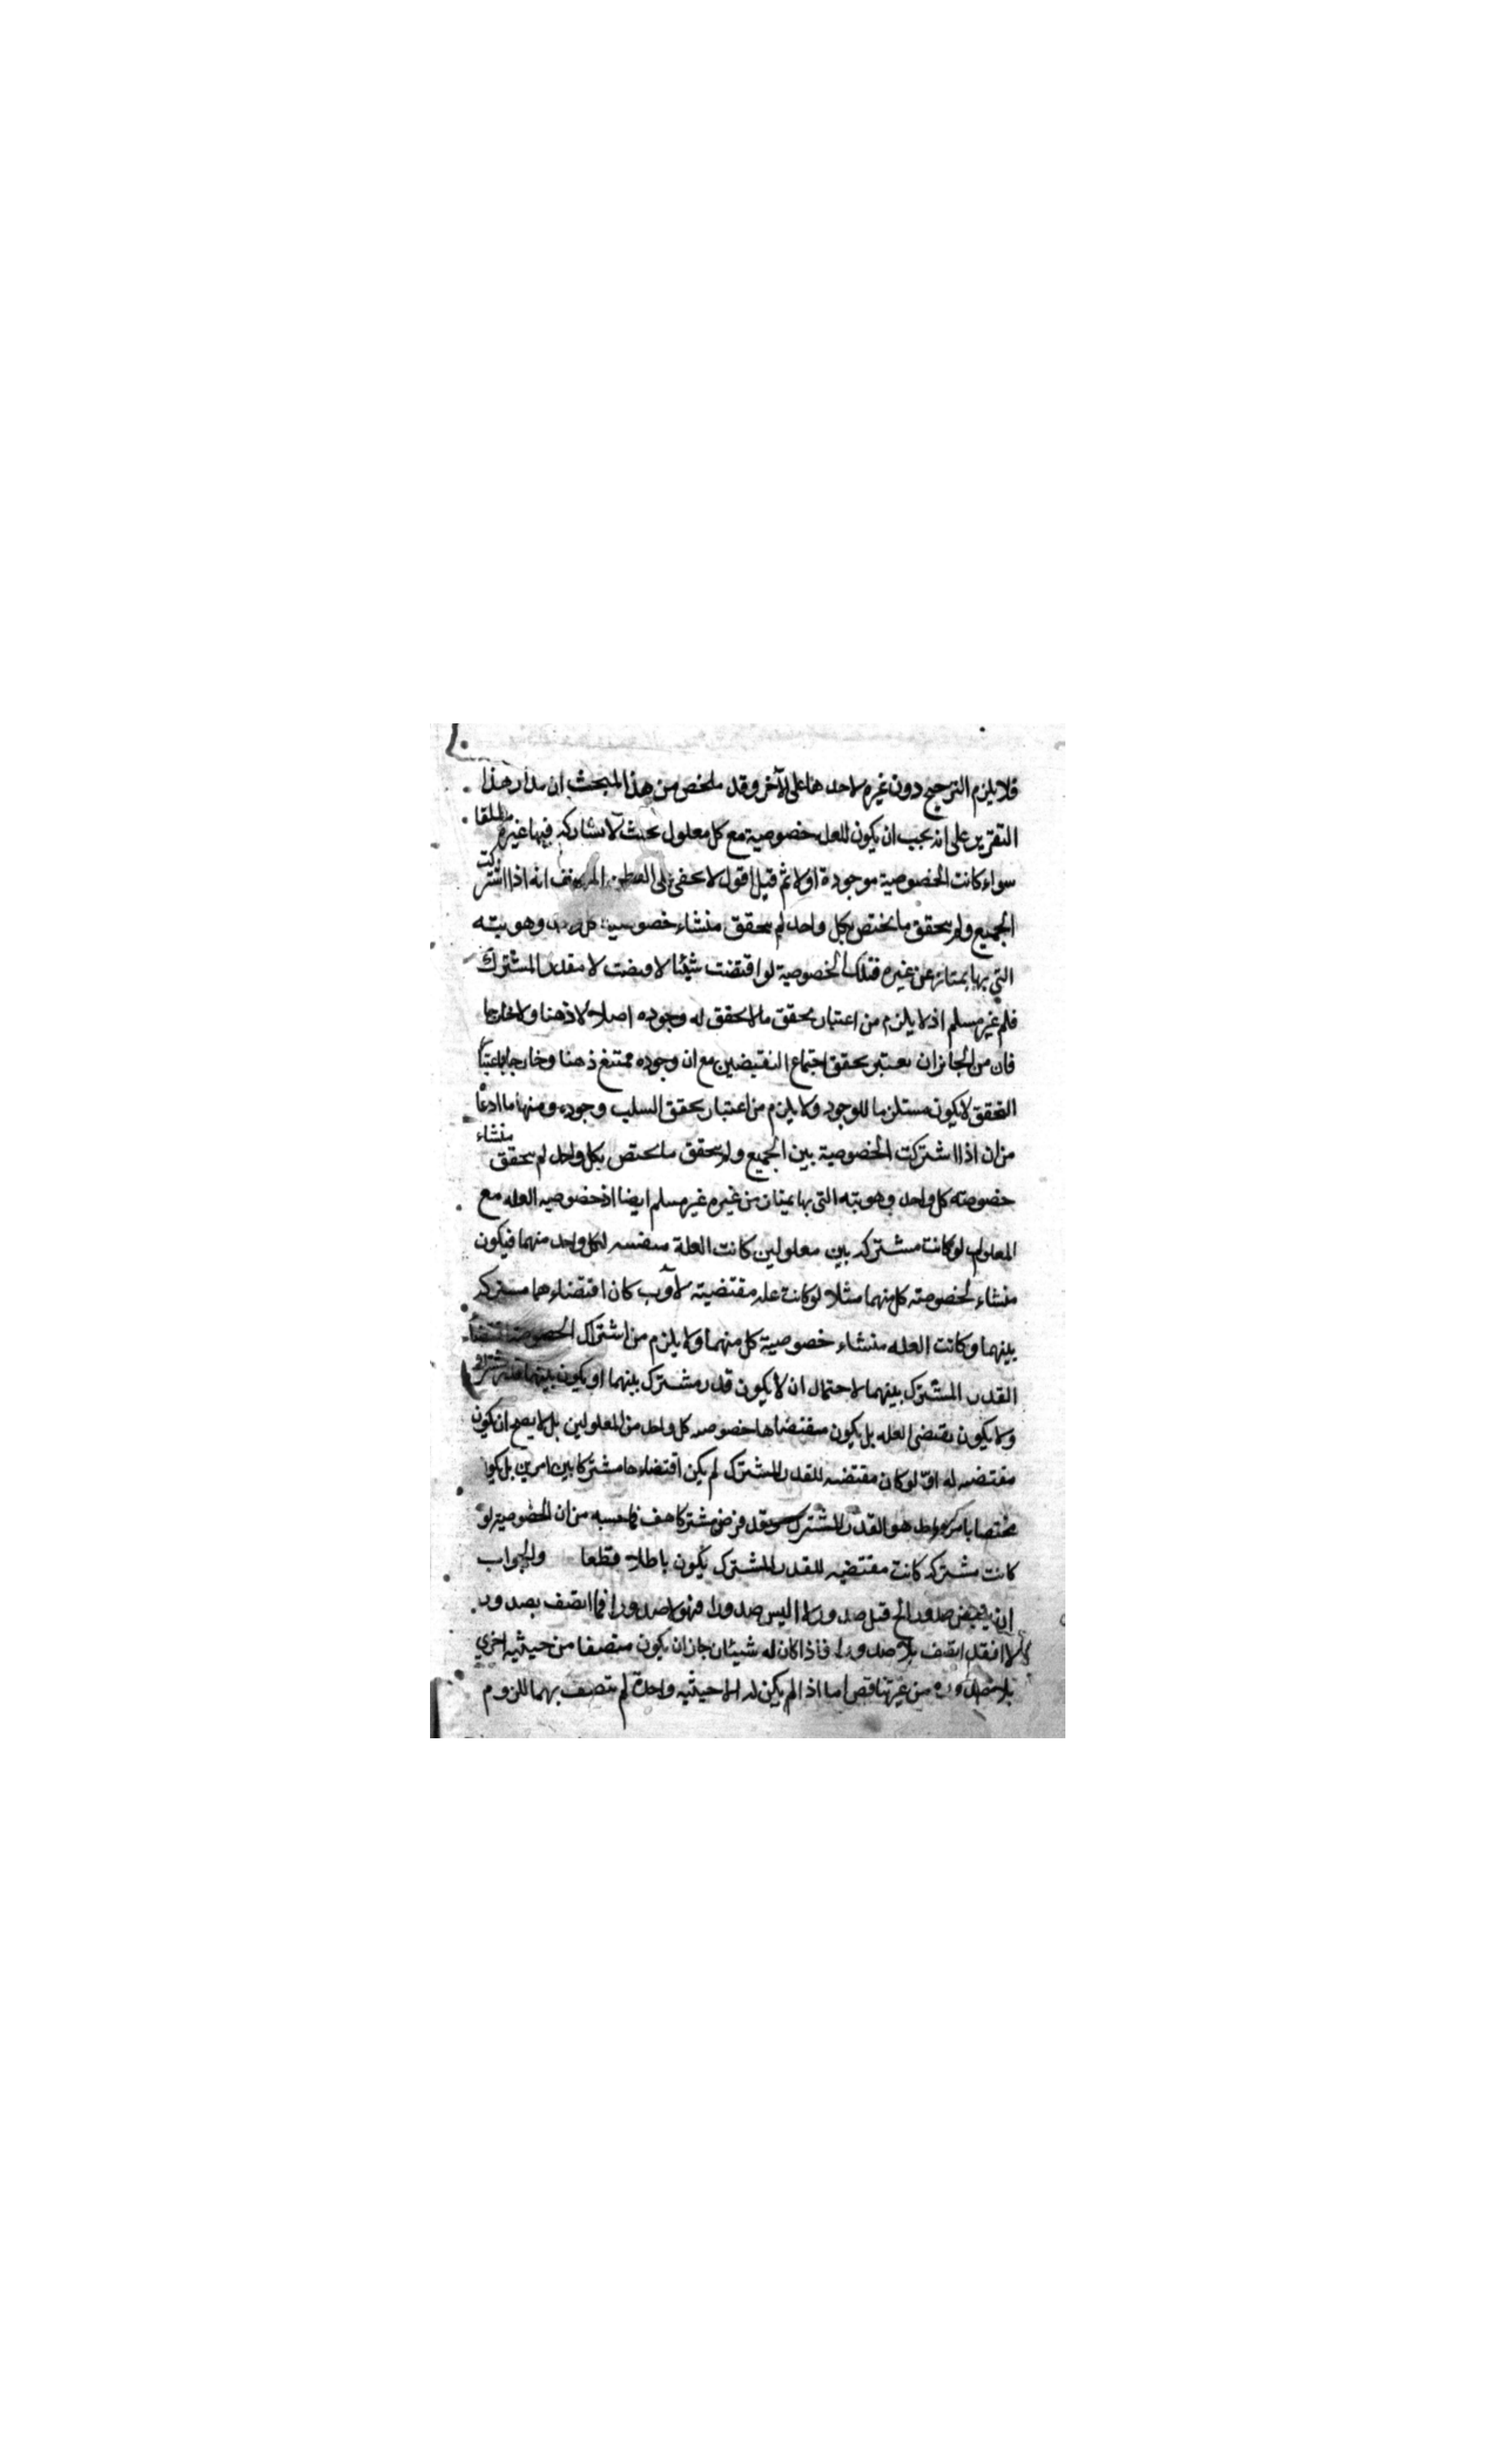 فلا يلزم الترجيح دون غيره لاحدهما على الآخر وقد ملخص من هذا المبحث ان مدار هذا
التقرير على انه يجب ان يكون للعله خصوصية مع كل معلول بحيث لا تشاركه فيها غيره مطلقا
سواء كانت الخصوصية موجودة او لا ثم قيل اقول لا يخفى على الفطن انه اذا اشتركت
الجميع ولم يتحقق ما يختص بكل واحد لم يتحقق منشاء خصوصية كل وهويته
التي بها يمتاز عن غيره فتلك الخصوصية لو اقتضت شيئا لاقتضت المشترك
فلم غير مسلم اذ لا يلزم من اعتبار تحقق ما لا تحقق له وجوده اصلا لا ذهنا ولا خارجا
فان من الجائز ان يعتبر تحقق اجتماع النقيضين مع ان وجوده ممتنع ذهنا وخارجا
التحقق لا يكون مستلزما للوجود ولا يلزم من اعتبار تحقق السلب وجوده ومنها ما ادعا
من ان اذا اشتركت الخصوصية بين الجميع ولم يتحقق ما يختص بكل واحد لم يتحقق منشاء
خصوصته كل واحد وهويته التي بها يمتاز من غيره غير مسلم ايضا اذ خصوصيه العله مع
المعلول لو كانت مشتركه بين معلولين كانت العلة مقتضيه لكل واحد منهما فيكون
منشاء لخصوصته كل منهما مثلا لو كانت عله مقتضيته لآ وب كان اقتضاءهما مشتركه
بينهما وكانت العله منشاء خصوصية كل منهما ولا يلزم من اشتراك الخصوصية اقتضاء
القدر المشترك بينهما لاحتمال ان لا يكون قدر مشترك بينهما او يكون بينهما
ولا يكون مقتضى العله بل يكون مقتضاها خصوصه كل واحد من المعلولين بل لا يصح ان يكون
مقتضيه له اذ لو كان مقتضيه للقدر المشترك لم يكن اقتضاءها مشتركا بين امرين بل يكون
مختصا بامر واحد هو القدر المشترك وقد فرض مشتركا هف فما حسبه من ان الخصوصية لو
كانت مشتركه كانت مقتضيه للقدر المشترك يكون باطلا قطعا والجواب
ان نقيض صدور الخ قيل صدور لا ا ليس صدور ا فهو لا صدور ا فما اتصف بصدور
لا ا فقد اتصف بلا صدور ا فاذا كان له شيئان جاز ان يكون متصفا من حيثيه اخري
بلا صدوره من غير تناقص اما اذا لم يكن له الا حيثيه واحدة لم يتصف بهما للزوم